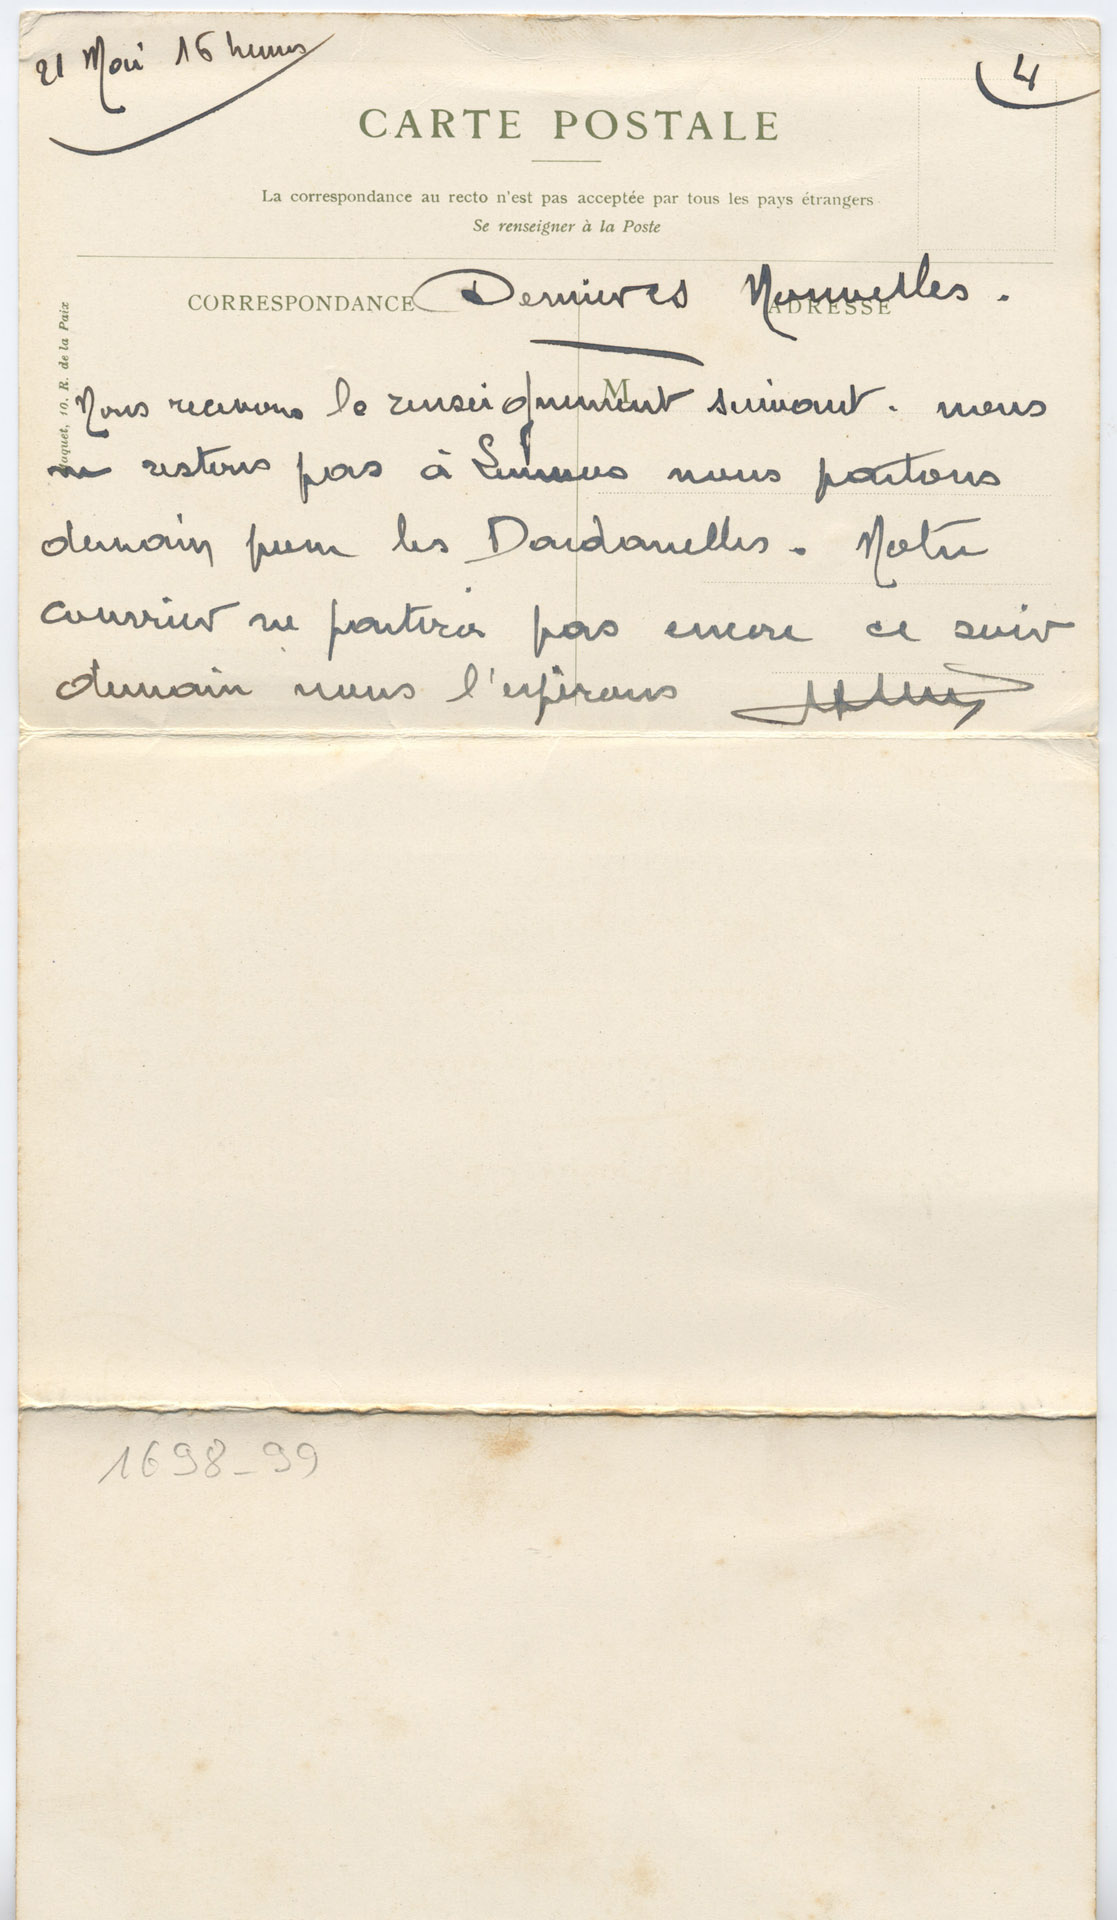 21 Mai 16 heures
4
CARTE POSTALE
La correspondance au recto n'est pas acceptée par tous les pays étrangers
Se renseigner à la Poste
CORRESPONDANCE
ADRESSE
Dernieres Nouvelles.
10, R. de la Paix
M
Nous recevons le renseignement suivant. nous
ne restons pas à Lemnos nous partons
demain pour les Dardanelles. Notre
courrier ne partira pas encore ce soir
demain nous l'espérons
1698-99